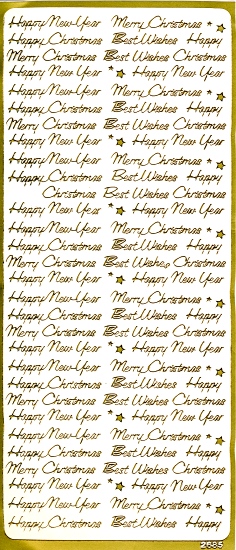 Happy New Year Merry Christmas
Happy Christmas Best Wishes Happy
Merry Christmas Best Wishes Christmas
Happy New Year Happy New Year
Happy New Year Merry Christmas
Happy Christmas Best Wishes Happy
Merry Christmas Best Wishes Christmas
Happy New Year Happy New Year
Happy New Year Merry Christmas
Happy Christmas Best Wishes Happy
Christmas Best Wishes Christmas
Happy New Year Happy New Year
Happy New Year Merry Christmas
Happy Christmas Best Wishes Happy
Merry Christmas Best Wishes Christmas
Happy New Year Happy New Year
Happy New Year Merry Christmas
Happy Christmas Best Wishes Happy
Merry Christmas Best Wishes Christmas
Happy New Year Happy New Year
Happy New Year Merry Christmas
Happy Christmas Best Wishes Happy
Merry Christmas Best Wishes Christmas
Happy New Year Happy New Year
Happy New Year Merry Christmas
Happy Christmas Best Wishes Happy
Merry Christmas Best Wishes Christmas
Happy New Year Happy New Year
Happy New Year Merry Christmas
Happy Christmas Best Wishes Happy